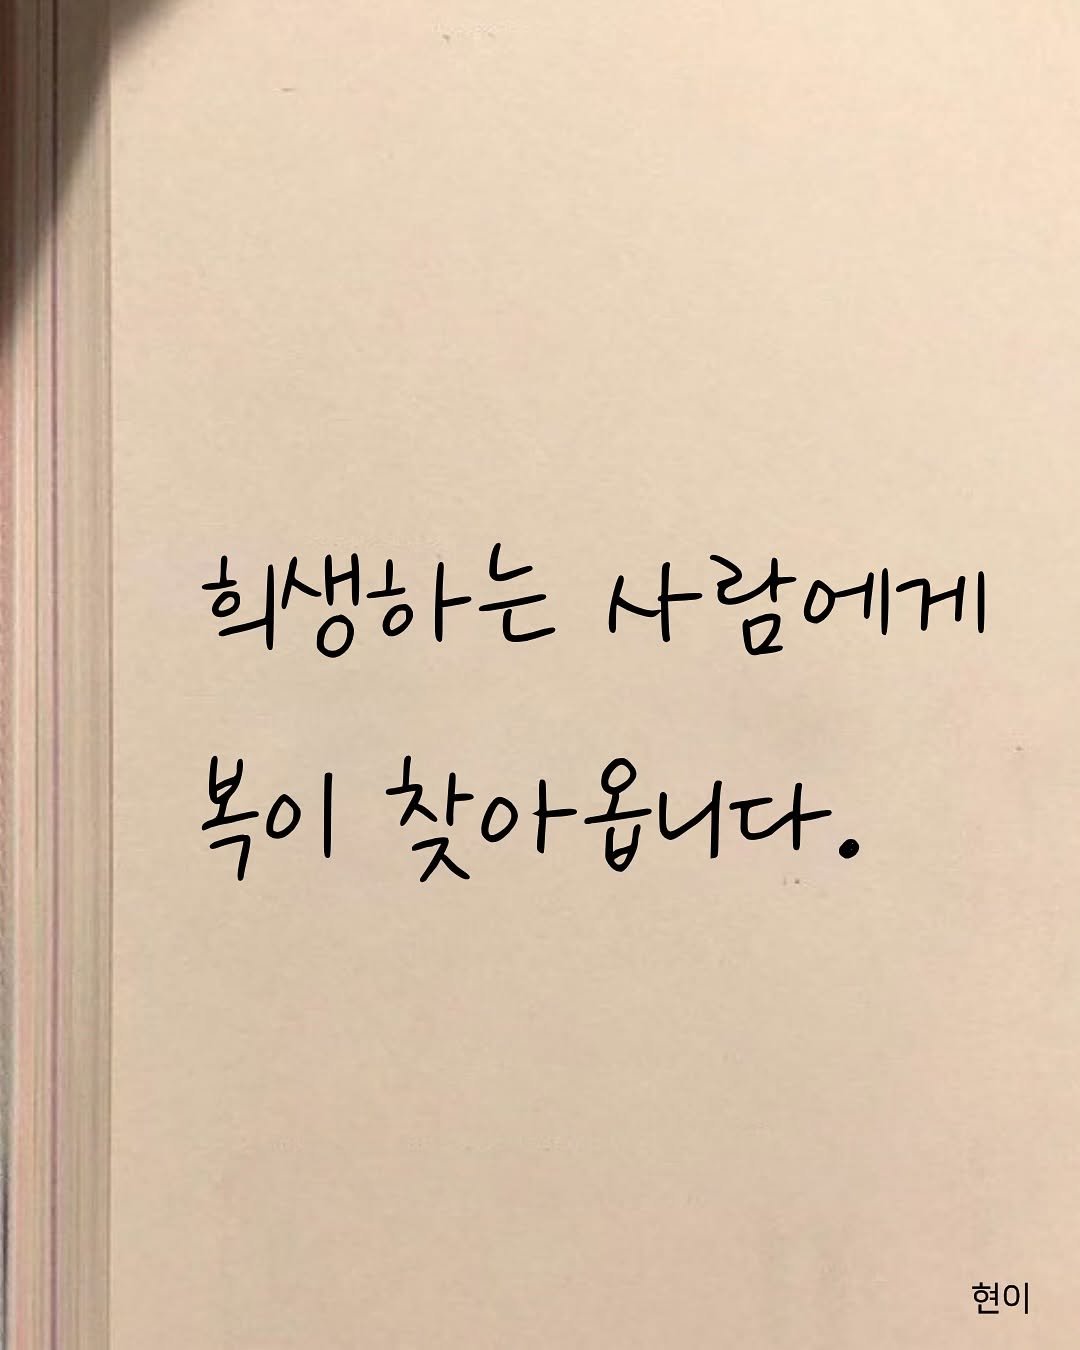 희생하는 사람에게
복이 찾아옵니다.
현이